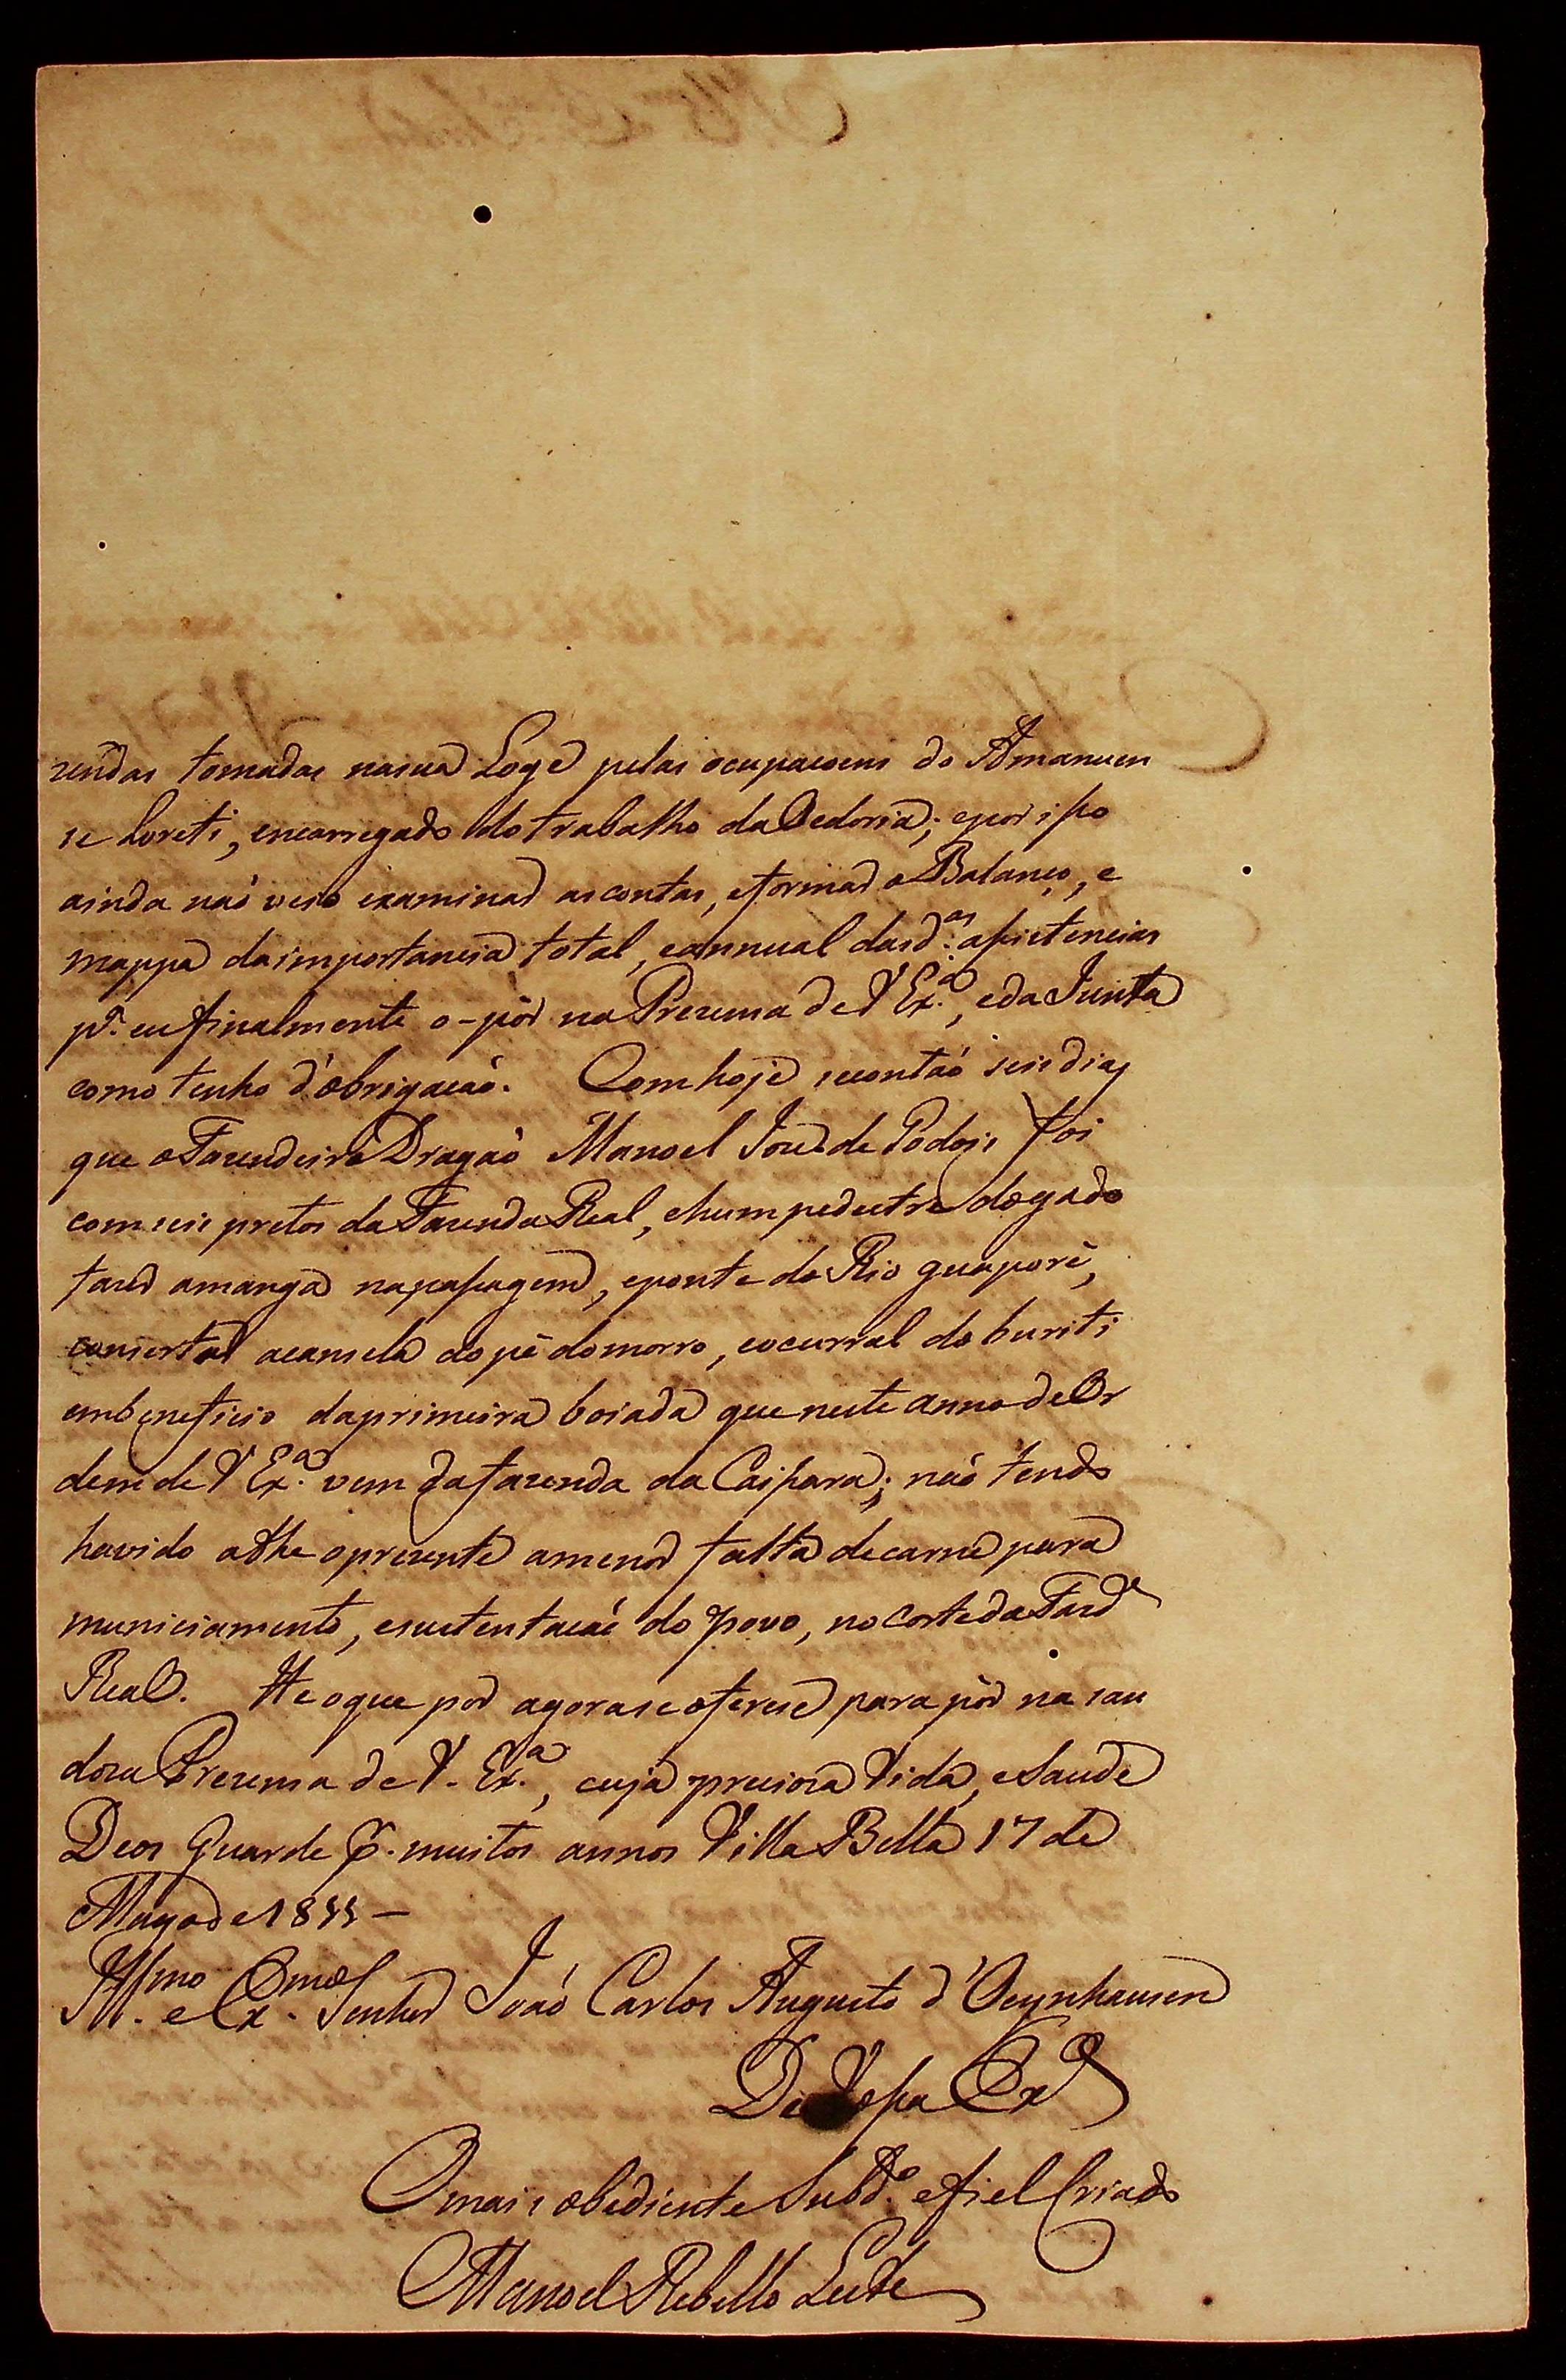 zendas tomadas nasua Loge pelas ocupacoens do Amanuen
se Loreti, encarregado do trabalho da Vedoria; epor isso
ainda naõ veio examinar ascontas, eformar o Balanço, e
mappa daimportancia total, eannual dasd.as assistencias
p.a eu finalmente o-pôr na Prezença de V Ex.a, eda Junta
como tenho d'obrigacaõ. Com hoje secontaõ seis dias
que o Fazendeiro Dragaõ Manoel Joze de foi
com seis pretos da Fazenda Real, ehum pedestre do gado
fazer amanga napassagem, eponte do Rio guaporé,
consertar acancela do pé domorro, eocurral do buriti
embeneficio daprimeira boiada que neste anno de Or
dem de V Ex.a vem da fazenda da Caissara; naõ tendo
havido athe oprezente amenor falta decarne para
municiamento, esustentacaõ do povo, no corte da Fazd.a
Real. He oque por agora se oferese para pôr na sau
doza Prezença de V. Ex.a, cuja precioza Vida, eSaude
Deos Guarde p.r muitos annos Villa Bella 17 de
Mayo de 1811 —
Ill.mo e Ex.mo Senhor Joaõ Carlos Augusto d'Oeynhausen
De Vossa Ex.a
O mais obediente Subd.o efiel Criado
Manoel Rebello Leite